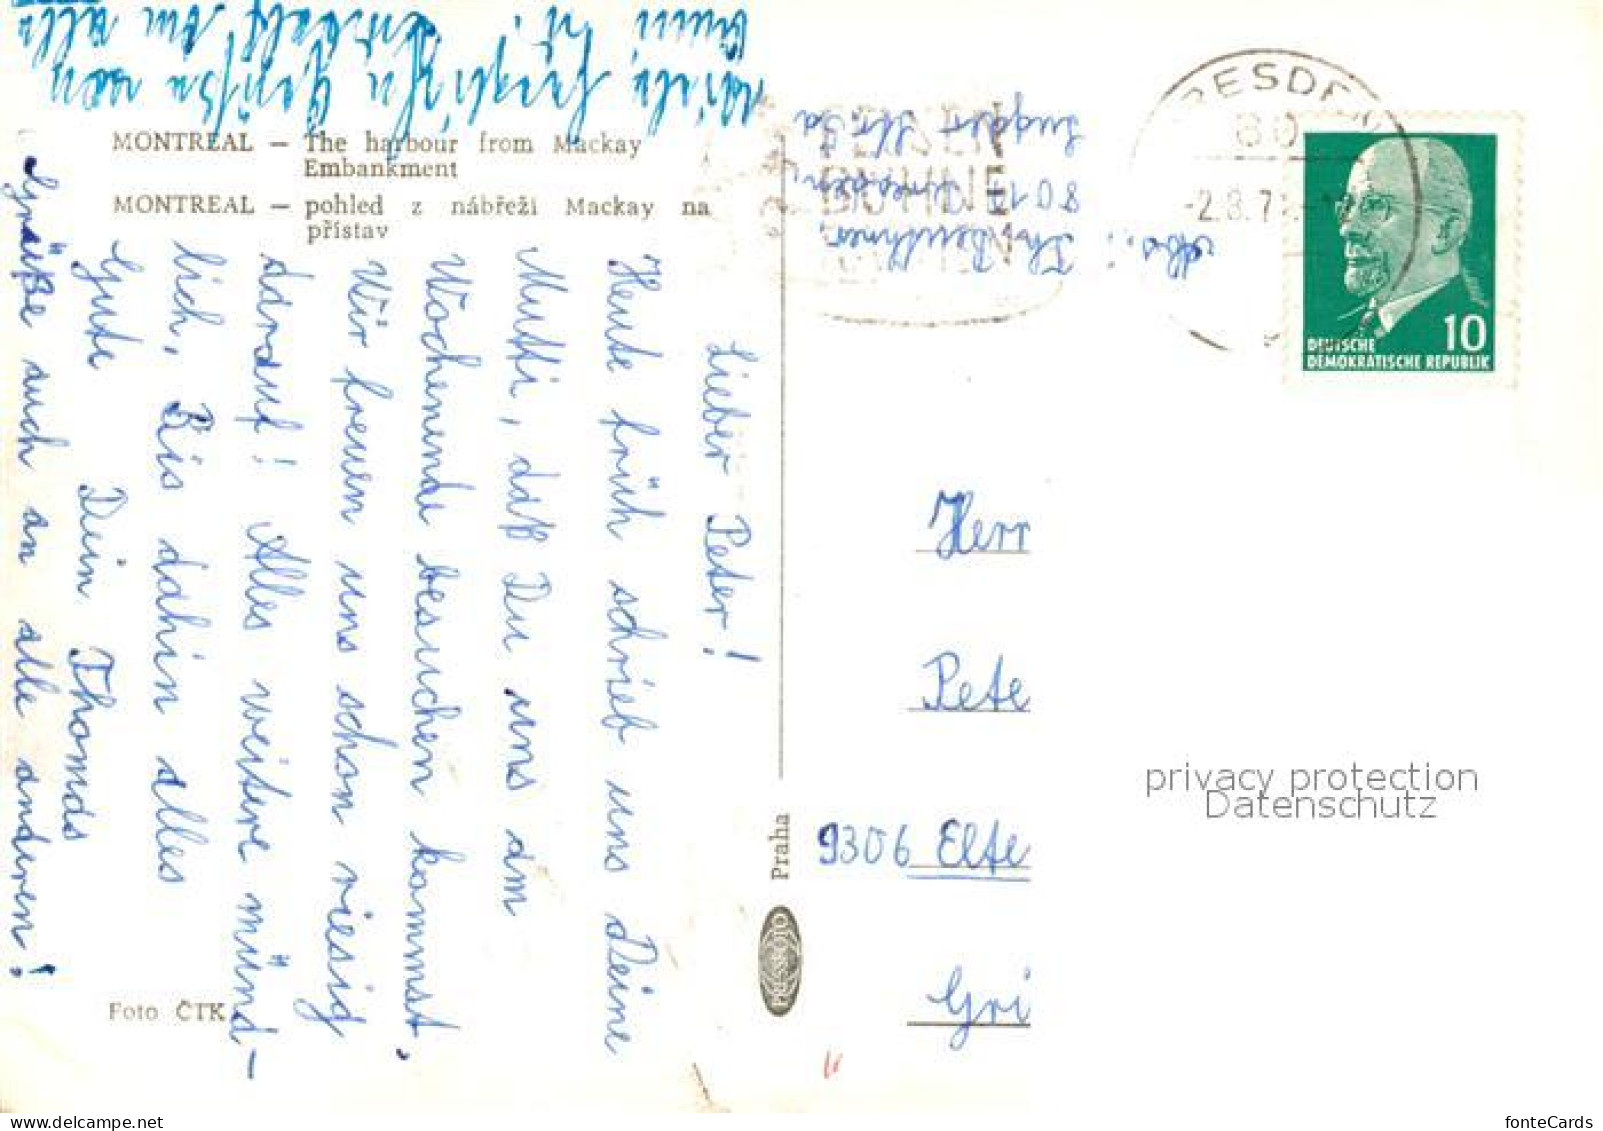 MONTREAL — The harbour from Mackay
Embankment
MONTREAL — pohled z nábřeží Mackay na
přístav
Lieber Peter!
Heute früh schrieb uns Deine
Mutti, daß Du uns am
Wochenende besuchen kommst.
Wir freuen uns schon riesig
darauf! Alles weitere münd-
lich. Bis dahin alles
Gute Dein Thomas
Grüße auch an alle anderen!
Foto ČTK
Praha
PRESSFOTO
Abs.: Th.
8017 Dresden
Str. 5a
DRESDEN
80
-2.8.7
10
DEUTSCHE
DEMOKRATISCHE REPUBLIK
Herr
Pete
9306 Elte
Gri
privacy protection
Datenschutz
fonteCards